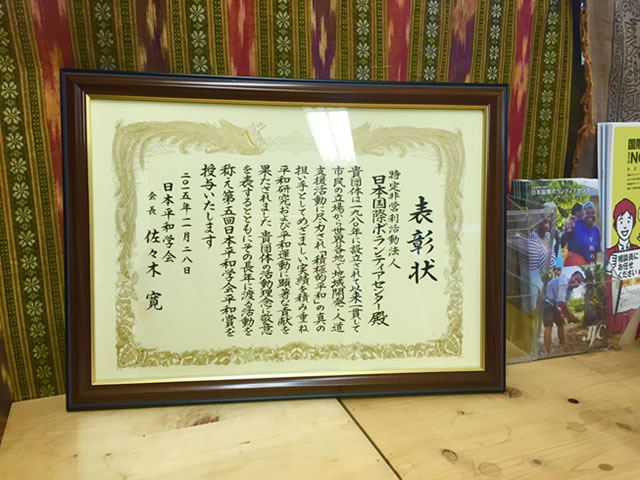 表彰状
特定非営利活動法人
日本国際ボランティアセンター殿
貴団体は一九八〇年に設立されて以来一貫して
市民の立場から世界各地で地域開発・人道
支援活動に尽力され「積極的平和」の真の
担い手としてめざましい実績を積み重ね
平和研究および平和運動に顕著な貢献を
果たされました 貴団体の活動理念に敬意
を表するとともにその長年に渡る活動を
称え第五回日本平和学会平和賞を
授与いたします
二〇一五年一一月二八日
日本平和学会
会長 佐々木 寛
日本国際ボランティアセンター
JVC
国際
NO
相談員に
お任せ
ください!